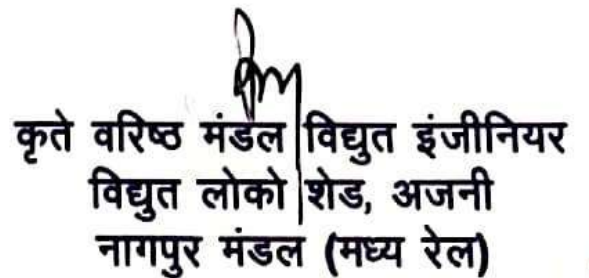 कृते वरिष्ठ मंडल विद्युत इंजीनियर
विद्युत लोको शेड, अजनी
नागपुर मंडल (मध्य रेल)